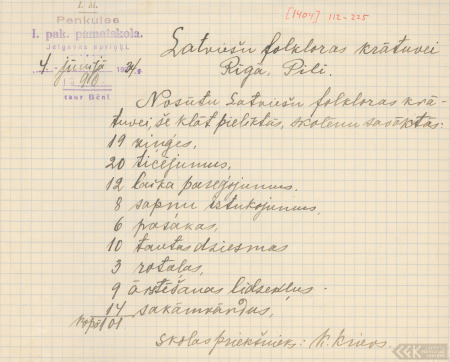 I. M.
Penkules
I. pak. pamatskola.
Jelgavas apriņķī.
4. jūnijā 1931.
№ 90
caur Bēni.
[1404] 112-225
Latviešu folkloras krātuvei
Rīgā, Pilī.
Nosūtu Latviešu folkloras krā-
tuvei, še klāt pieliktas, skolēnu savāktās:
19 ziņģes,
20 ticējumus,
12 laika paregojumus.
8 sapņu iztulkojumus,
6 pasakas,
10 tautas dziesmas
3 rotaļas,
9 ārstēšanas līdzekļus.
14 sakāmvārdus,
Kopā 101
skolas priekšnieks: